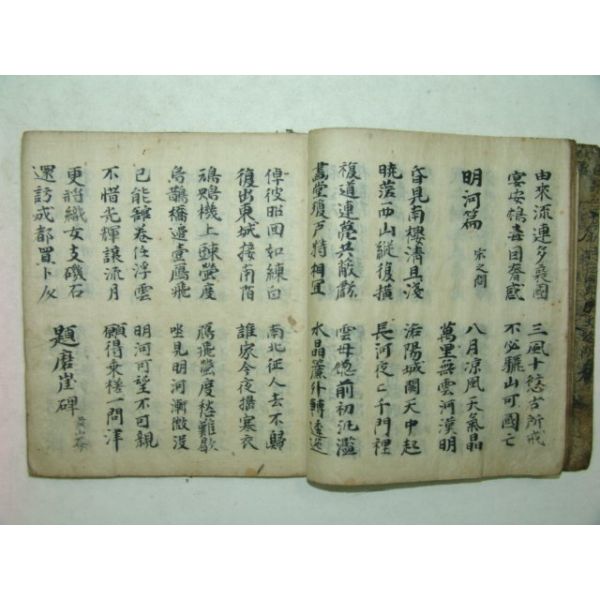 由來流連多喪國
宴安鴆毒因奢惑
三風十愆古所戒
不必驪山可國亡
明河篇
宋之問
八月凉風天氣晶
萬里無雲河漢明
昏見南樓清且淺
曉落西山縱復橫
洛陽城闕天中起
長河夜々千門裡
複道連甍共蔽虧
畫堂瓊戶特相宜
雲母帳前初汎濫
水晶簾外轉逶迤
倬彼昭回如練白
復出東城接南陌
南北征人去不歸
誰家今夜搗寒衣
鴛鴦機上踈螢度
烏鵲橋邊一鴈飛
鴈飛螢度愁難歇
坐見明河漸微沒
已能舒卷任浮雲
不惜光輝讓流月
明河可望不可親
願得乘槎一問津
更將織女支磯石
還訪成都買卜人
題磨崖碑
黃山谷